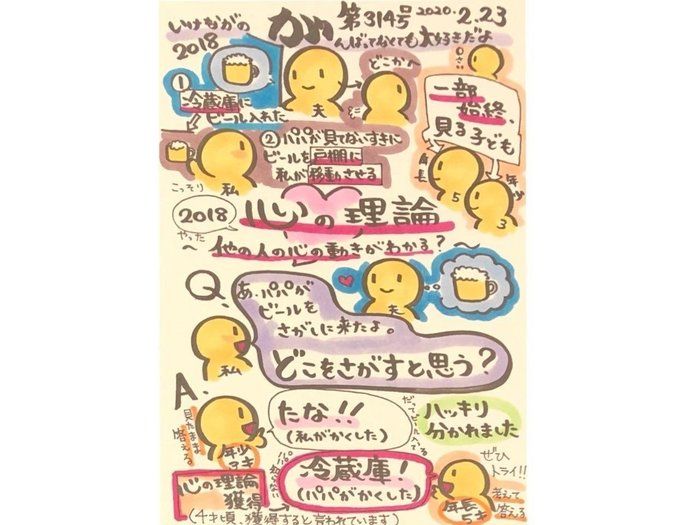 いけながの
2018
がんばってなくても大好きだよ
第314号 2020.2.23
0さい
①
冷蔵庫に
ビール入れた
夫
どこかへ
一部
始終、
見る子ども
年長
5
年少
3
②パパが見てないすきに
ビールを戸棚に
私が移動させる
こっそり
私
2018
やった
心の理論
~他の人の心の動きがわかる?~
Q.
あ、パパが
ビールを
さがしに来たよ。
どこをさがすと思う?
夫
私
A.
見たまま
答える
年少
3才
たな!!
(私がかくした)
だってビール入ってる
ハッキリ
分かれました
心の理論
獲得
(4才頃、獲得すると言われています)
パパ
知らない
冷蔵庫!
(パパがかくした)
ぜひ
トライ!!
考えて
答える
年長
5才